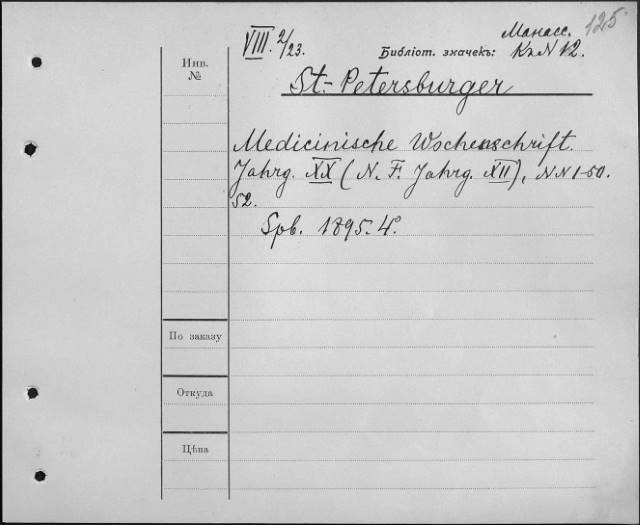 125
VIII. 2/23.
Манасс.
Библіот. значекъ: Кн N 12.
Инв.
№
St.- Petersburger
Medicinische Wochenschrift.
Jahrg. XX (N. F. Jahrg. XII), NN 1-50.
52.
Spb. 1895. 4°.
По заказу
Откуда
Цѣна